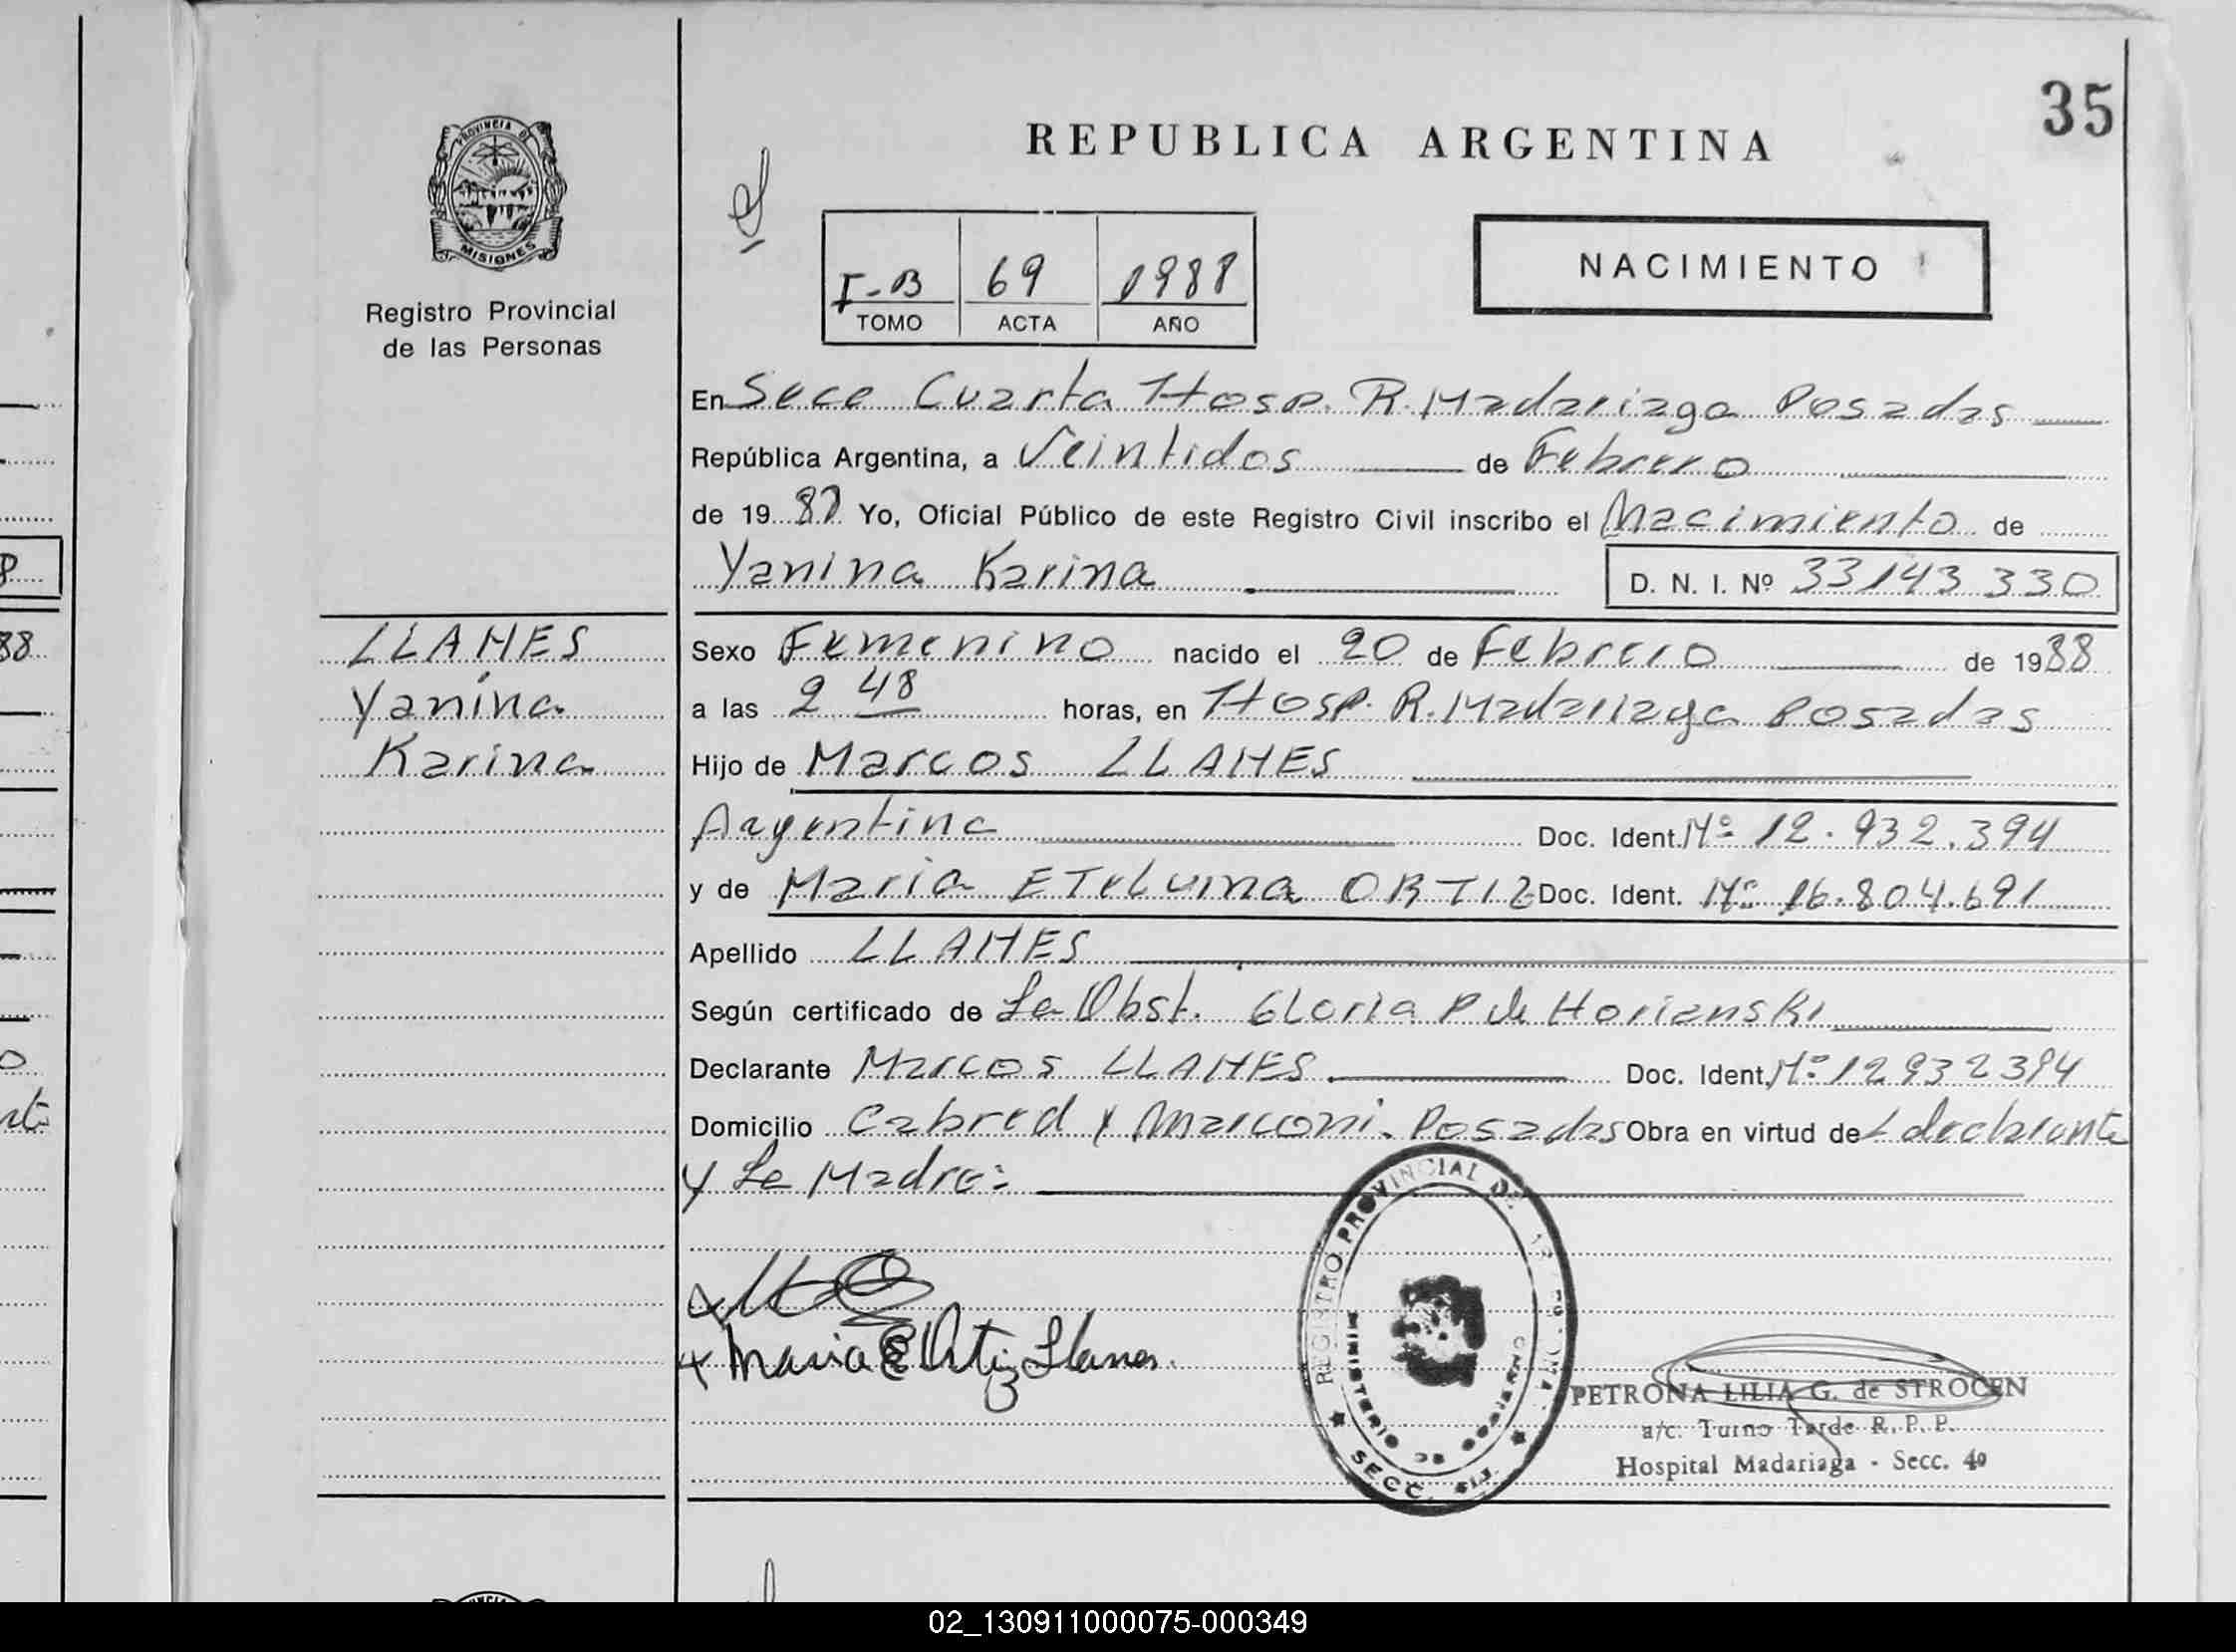 35
REPUBLICA ARGENTINA
PROVINCIA DE
MISIONES
Registro Provincial
de las Personas
NACIMIENTO
I-B 69 1988
TOMO ACTA AÑO
En Secc Cuarta Hosp. R. Madariaga Posadas
República Argentina, a Veintidos de Febrero
de 19 88 Yo, Oficial Público de este Registro Civil inscribo el Nacimiento de
Yanina Karina D. N. I. Nº 33143330
LLANES
Yanina
Karina
Sexo Femenino nacido el 20 de Febrero de 1988
a las 2 48 horas, en Hosp. R. Madariaga Posadas
Hijo de Marcos LLANES
Argentina Doc. Ident. Nº 12.932.394
y de Maria ETELvina ORTIZ Doc. Ident. Nº 16.804.691
Apellido LLANES
Según certificado de La Obst. Gloria P de Horianski
Declarante Marcos LLANES. Doc. Ident. Nº 12932394
Domicilio Cabred y Marconi. Posadas Obra en virtud de L declarante
y La Madre:
Maria E Ortiz Llanes.
REGISTRO PROVINCIAL DE
MINISTERIO DE GOBIERNO
SECC.
PETRONA LILIA G. de STROCEN
a/c. Turno Tarde R. P. P.
Hospital Madariaga - Secc. 4º
88
02_130911000075-000349